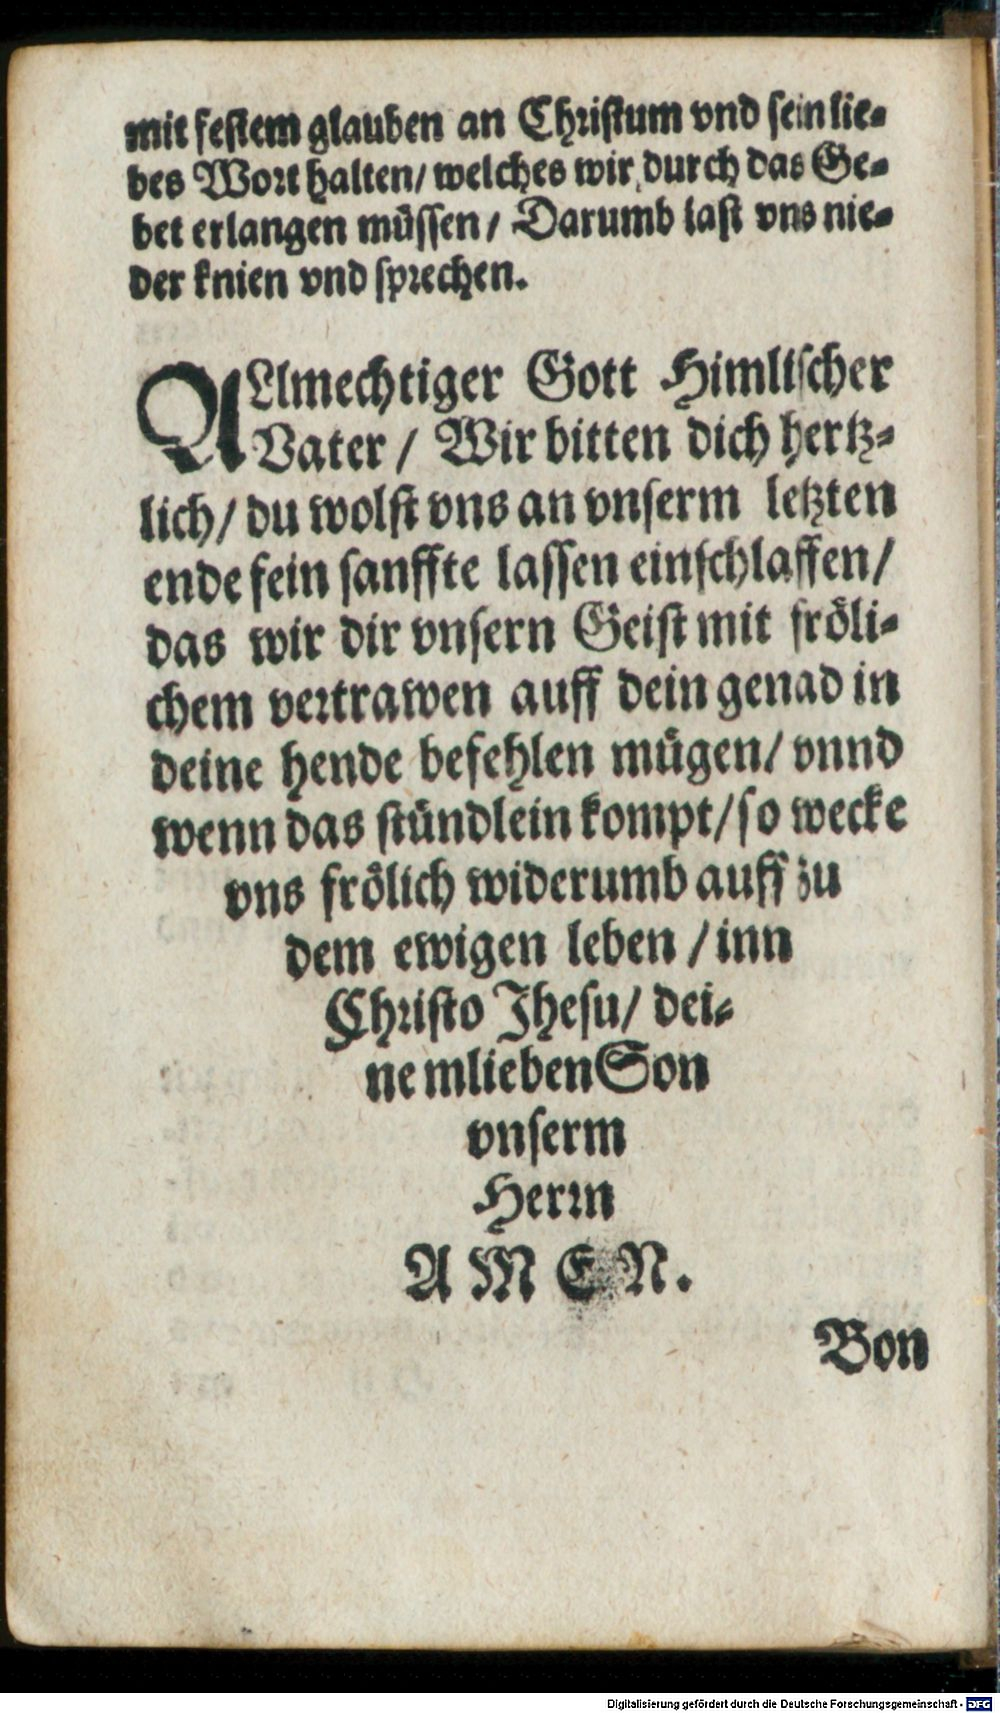 mit festem glauben an Christum vnd sein lie-
bes Wort halten/ welches wir durch das Ge-
bet erlangen müssen/ Darumb last vns nie-
der knien vnd sprechen.
ALlmechtiger Gott Himlischer
Vater / Wir bitten dich hertz-
lich/ du wolst vns an vnserm letzten
ende fein sanffte lassen einschlaffen/
das wir dir vnsern Geist mit fröli-
chem vertrawen auff dein genad in
deine hende befehlen mügen/ vnnd
wenn das stündlein kompt/ so wecke
vns frölich widerumb auff zu
dem ewigen leben / inn
Christo Jhesu/ dei-
nem lieben Son
vnserm
Herrn
A M E N.
Von
Digitalisierung gefördert durch die Deutsche Forschungsgemeinschaft - DFG